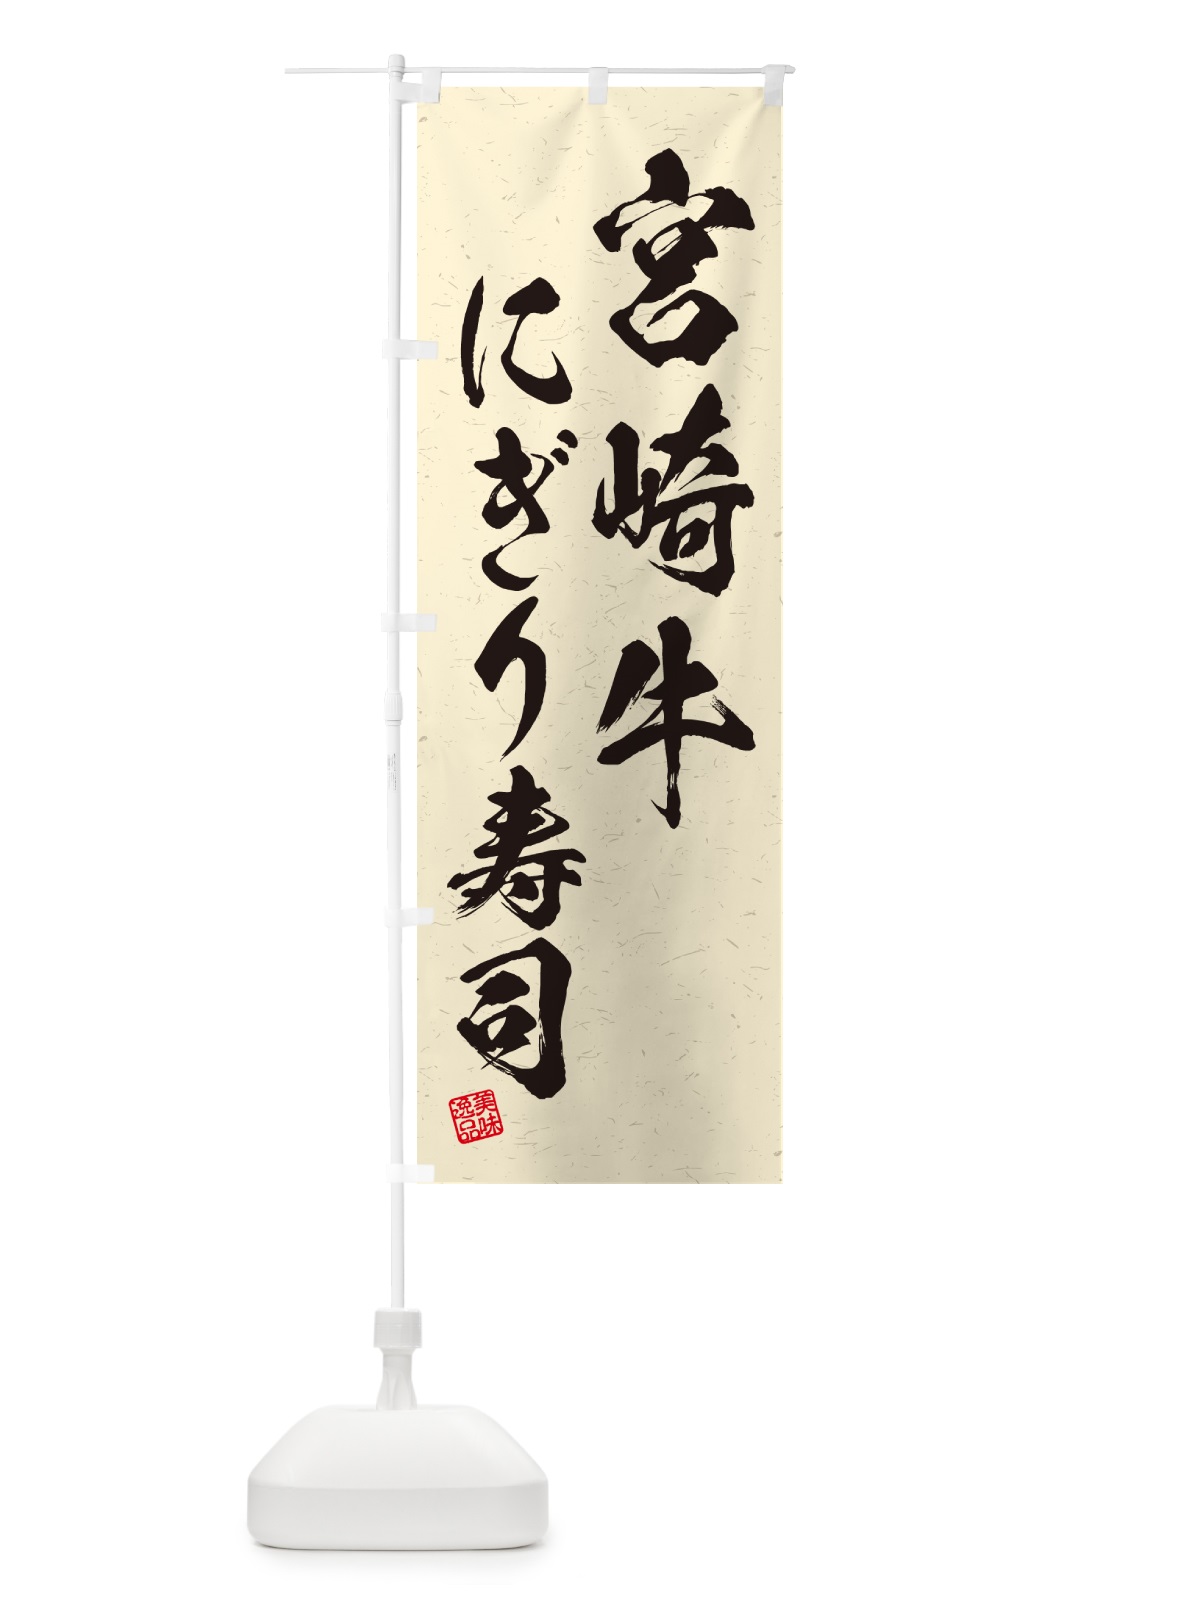 宮崎牛
にぎり寿司
美味
逸品